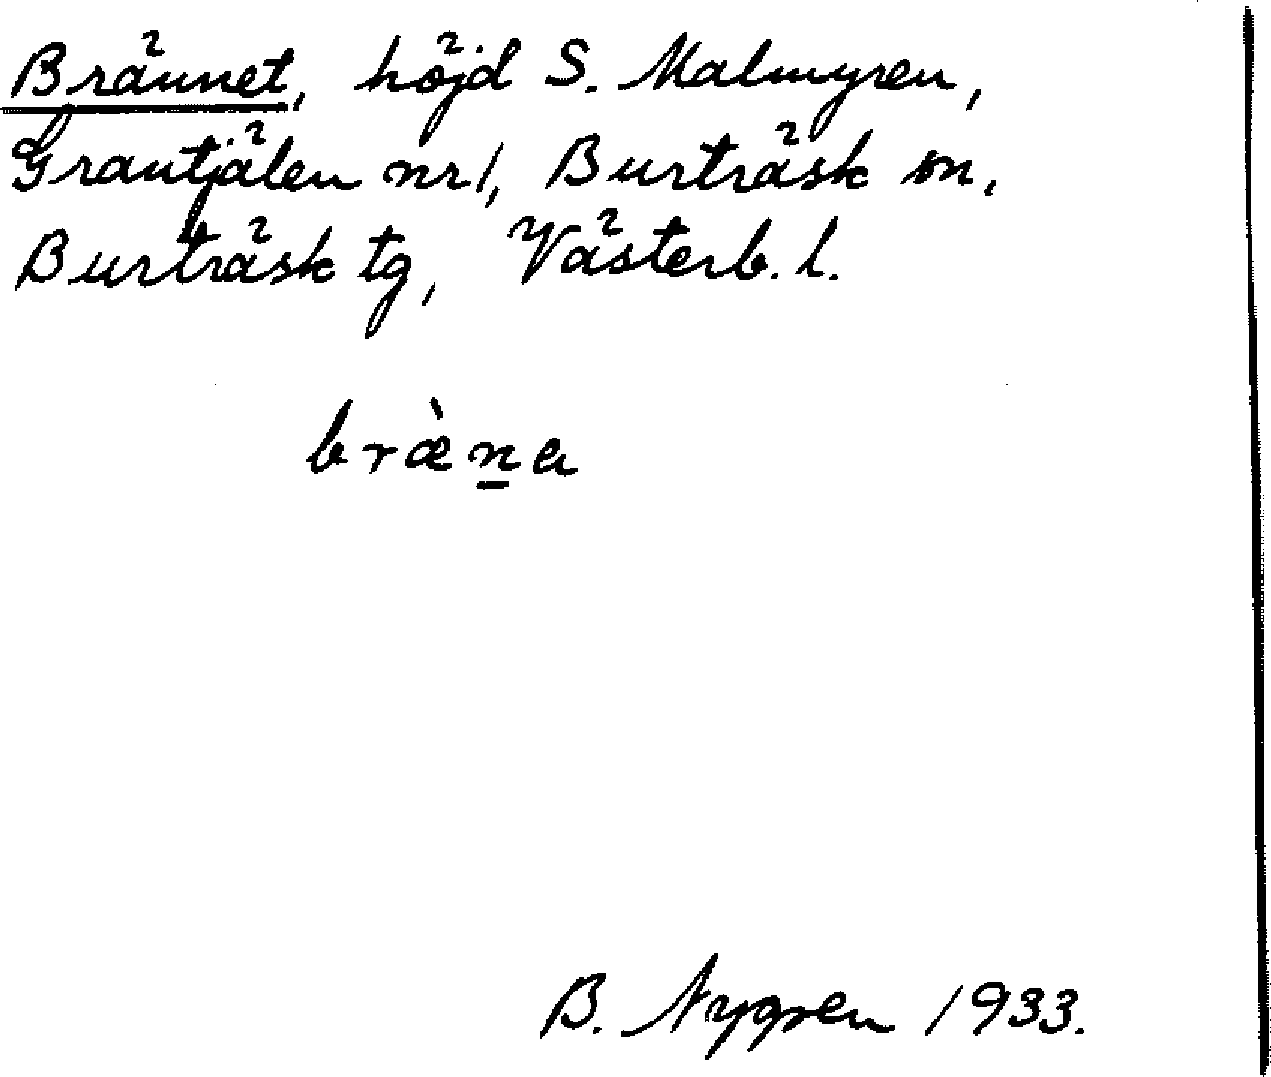 Brännet, höjd S. Malmyren,
Grantjälen nr 1, Burträsk sn,
Burträsk tg, Västerb. l.
bræ̀n̲a
B. Nygren 1933.